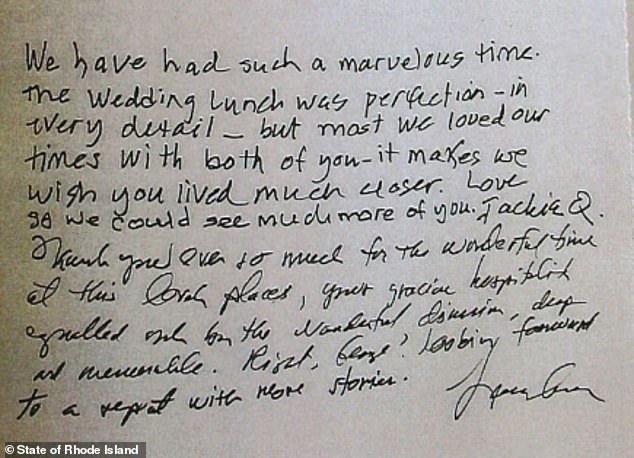 We have had such a marvelous time.
The Wedding Lunch was perfection - in
every detail - but most we loved our
times with both of you - it makes we
wish you lived much closer. Love
so we could see much more of you. Jackie Q.
Thank you ever so much for the wonderful time
at this places, your hospitality
equalled only by the wonderful, deep
memorable. Right, George! Looking forward
to a repeat with more stories.
© State of Rhode Island